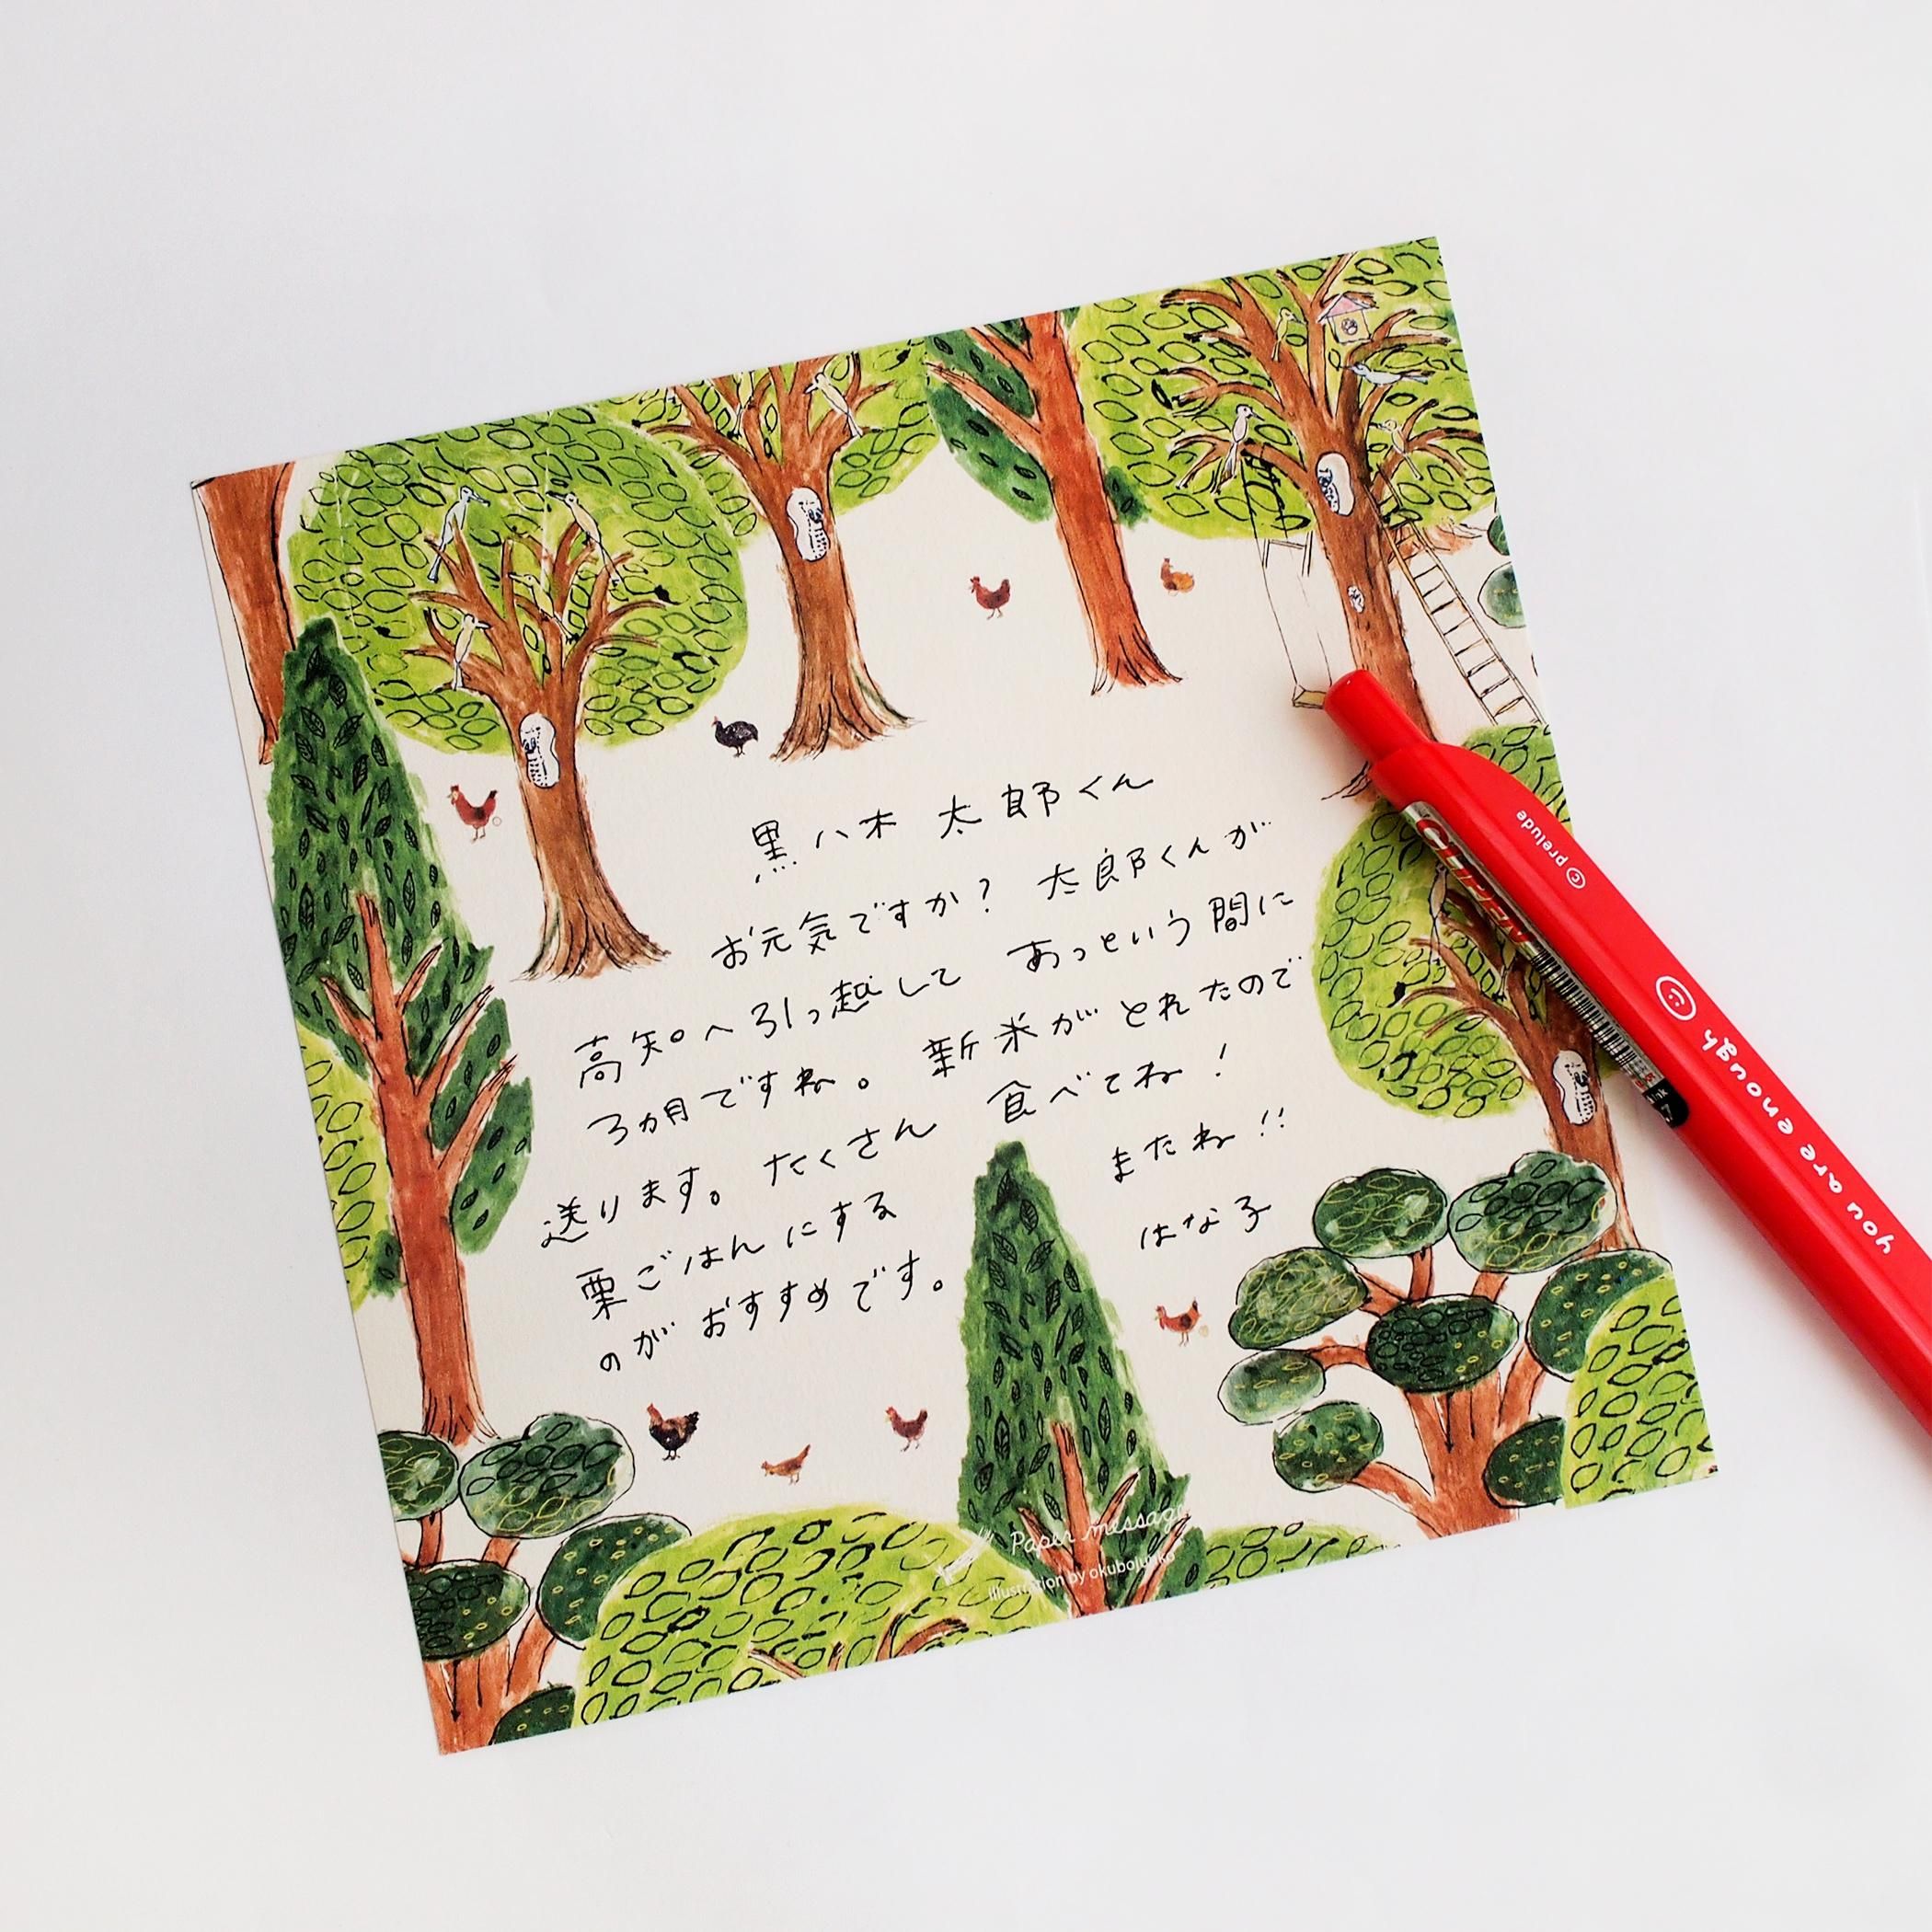 黒八木 太郎くん
お元気ですか? 太郎くんが
高知へ引っ越して あっという間に
3ヵ月ですね。 新米がとれたので
送ります。 たくさん 食べてね!
栗ごはんにする
のが おすすめです。
またね!!
はな子
Paper message
illustration by okubojunko
© prelude
you are enough